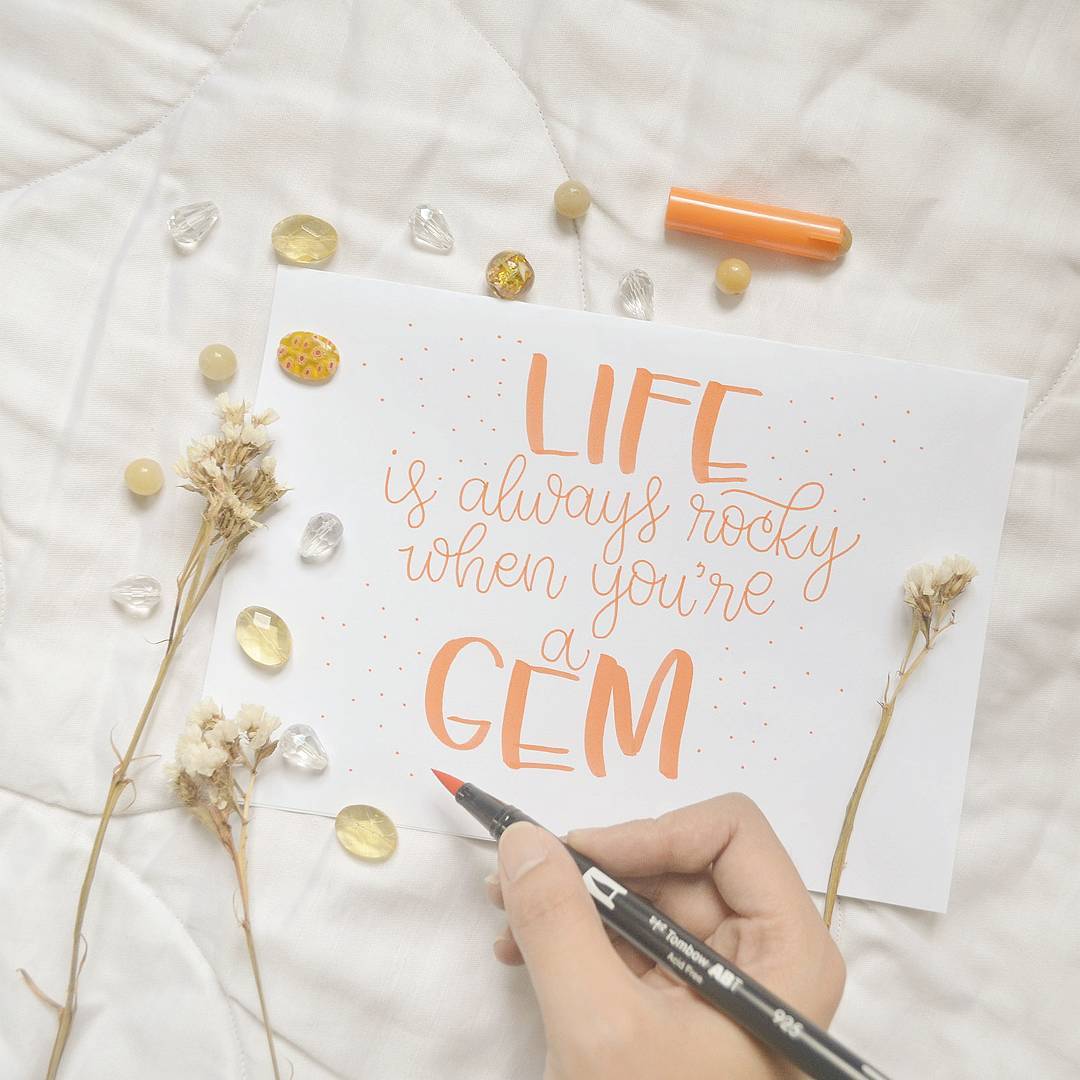 LIFE
is always rocky
when you're
a
GEM
Tombow ABT
Acid Free
925